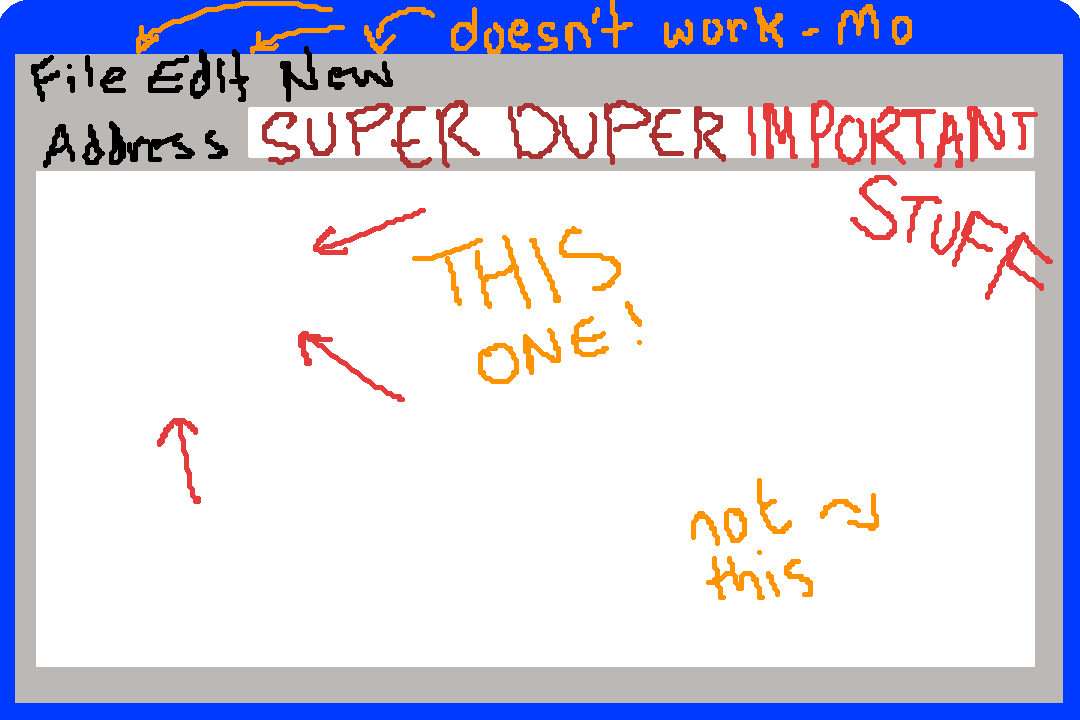 doesn't work - Mo
File Edit New
Address SUPER DUPER IMPORTANT
STUFF
THIS
ONE!
not
this